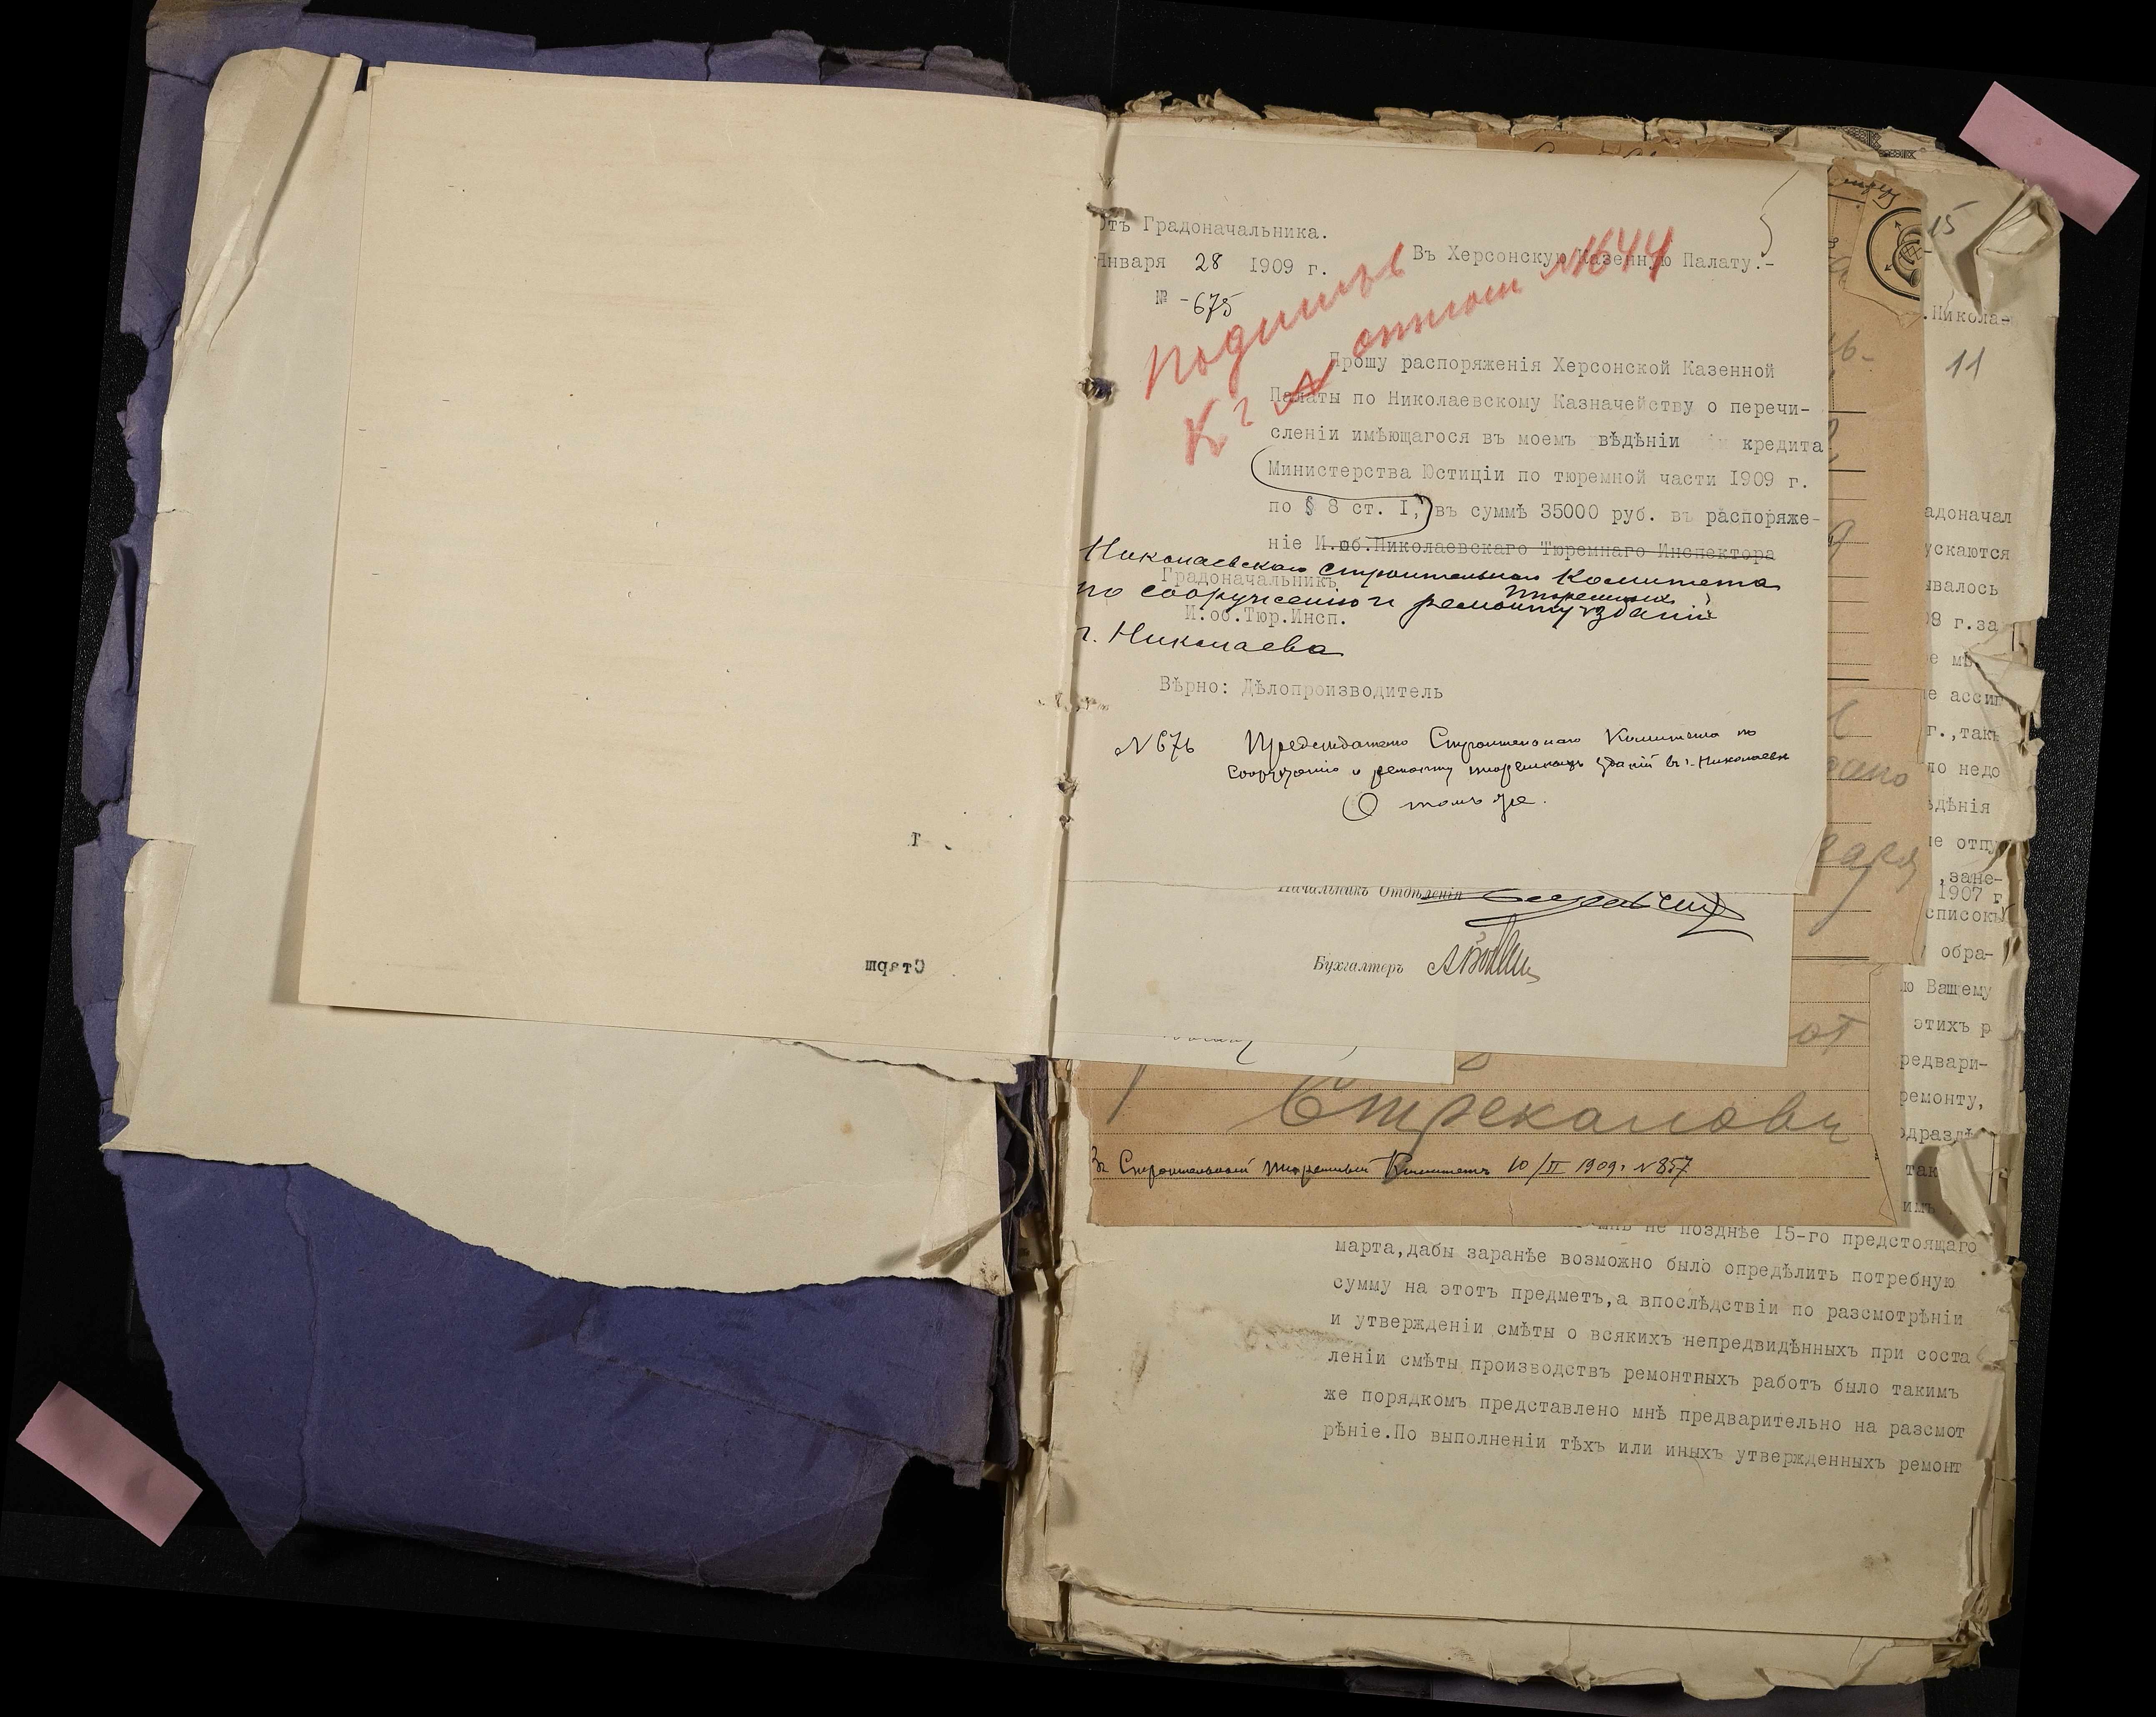 Отъ Градоначальника.
Января 28 1909 г.
№ -675
Въ Херсонскую Казенную Палату.-
Подшить
къ отпют №1644
Прошу распоряженія Херсонской Казенной
Палаты по Николаевскому Казначейству о перечи-
сленіи имѣющагося въ моемъ вѣдѣніи кредита
Министерства Юстиціи по тюремной части 1909 г.
по § 8 ст. I, въ суммѣ 35000 руб. въ распоряже-
ніе И.об.Николаевскаго Тюремнаго Инспектора
Николаевскаго Строительнаго Комитета
Градоначальникъ
по сооруженію и ремонту тюремныхъ зданій
И.об.Тюр.Инсп.
г. Николаева
Вѣрно: Дѣлопроизводитель
№ 676 Предсѣдателю Строительнаго Комитета по
сооруженію и ремонту тюремныхъ зданій въ г. Николаевѣ
О томъ же.
Начальникъ Отдѣленія
Бухгалтеръ
Стрекаловъ
Въ Строительный Тюремный Комитетъ 10/II 1909 г №857
15
.Никола-
11
адоначал
ускаются
ивалось
08 г.за
е ассиг
г.,такъ
ло недо
ѣдѣнія
е отпу
,зане-
1907 г
списокъ
обра-
ю Вашему
этихъ р
редвари-
ремонту,
одраздѣ
так
имъ
мнѣ не позднѣе 15-го предстоящаго
марта,дабы заранѣе возможно было опредѣлить потребную
сумму на этотъ предметъ,а впослѣдствіи по разсмотрѣніи
и утвержденіи смѣты о всякихъ непредвидѣнныхъ при соста
леніи смѣты производствъ ремонтныхъ работъ было такимъ
же порядкомъ представлено мнѣ предварительно на разсмот
рѣніе.По выполненіи тѣхъ или иныхъ утвержденныхъ ремонт